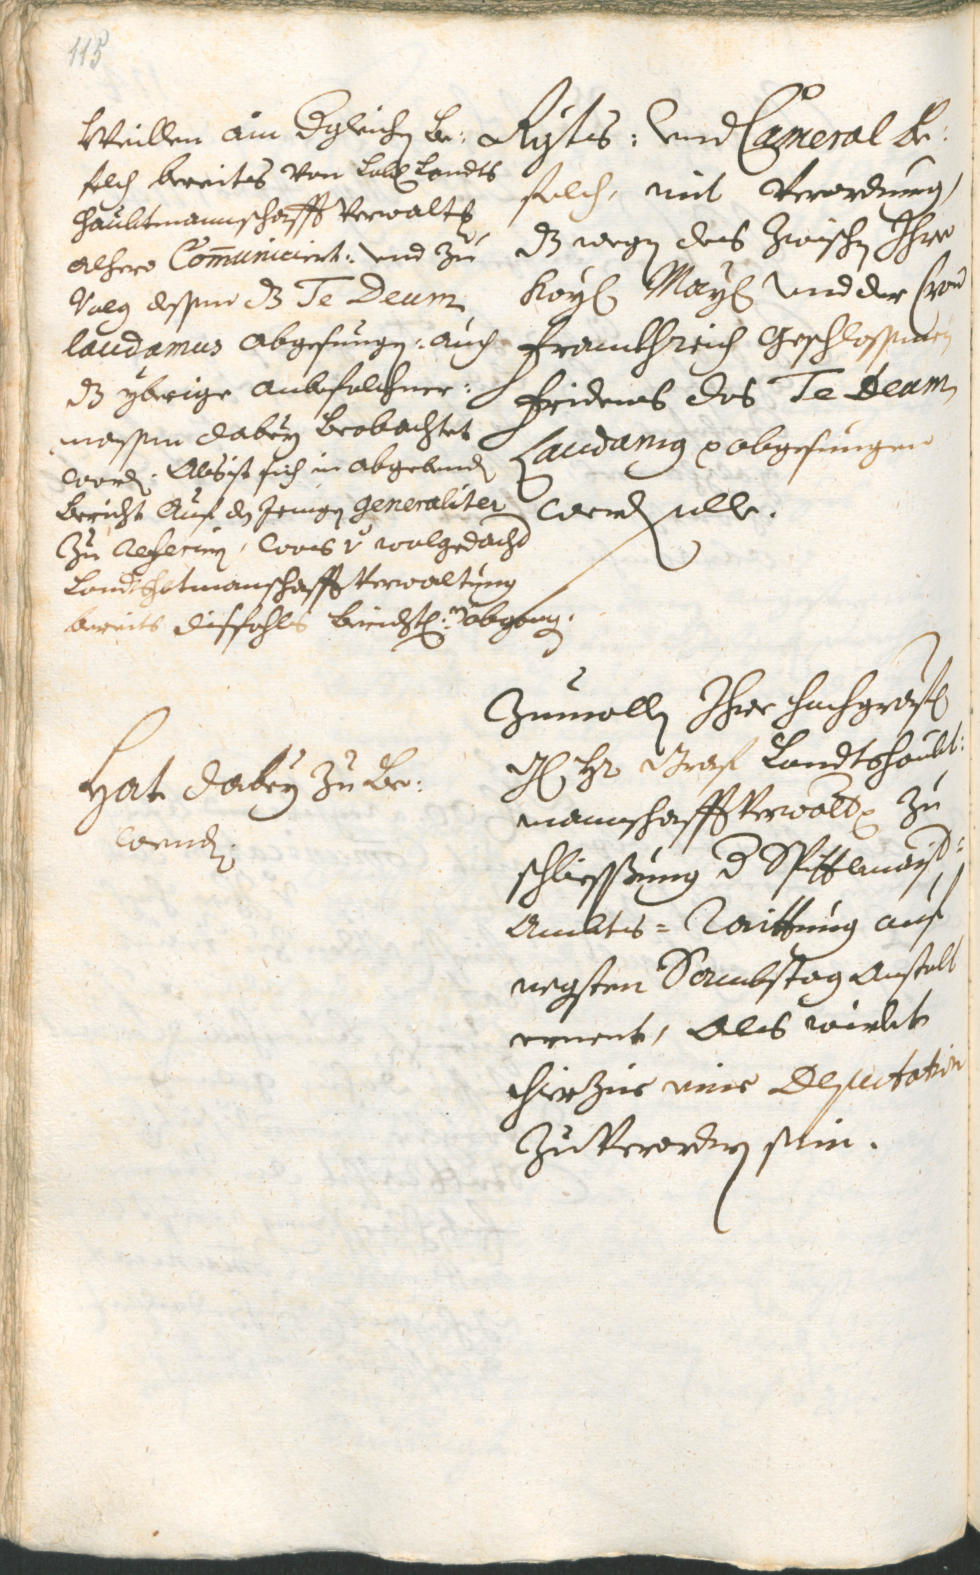 115
Weillen ain dgleichen Be:
felch bereits von Lobl. Landts
haubtmannschafft Verwaltg
alhero Communiciert: und zu
Volg dessen dz Te Deum
laudamus abgesungen: auch
dz ybrige anbefolchner:
massen dabey beobachtet
word: Als ist sich in abgebend
Bericht auf den Jenigen generaliter
zu referiern, wovon wolgedacht
Landtshbtmanschafft Verwaltung
bereits dissfahls bericht abgang.
Hat dabey zu Be:
wendten.
Rgts: und Cameral Be:
felch, mit Verordnung,
dz wegen des zwischen Ihro
Kayl. Mayl. und der Cron
Franckhreich geschlossnen
Fridens das Te Deum
Laudamus abgesungen
werden solle.
Zumallen Ihre hochgräfl.
Hr Graf Landtshaubt:
mannschafft Verwalter zu
schliessung d Spittlmaist:
Ambts= Raittung auf
negsten Sambstag Anstalt
ernent, Als wirdet
hierzue eine Deputation
zu Verordnen sein.